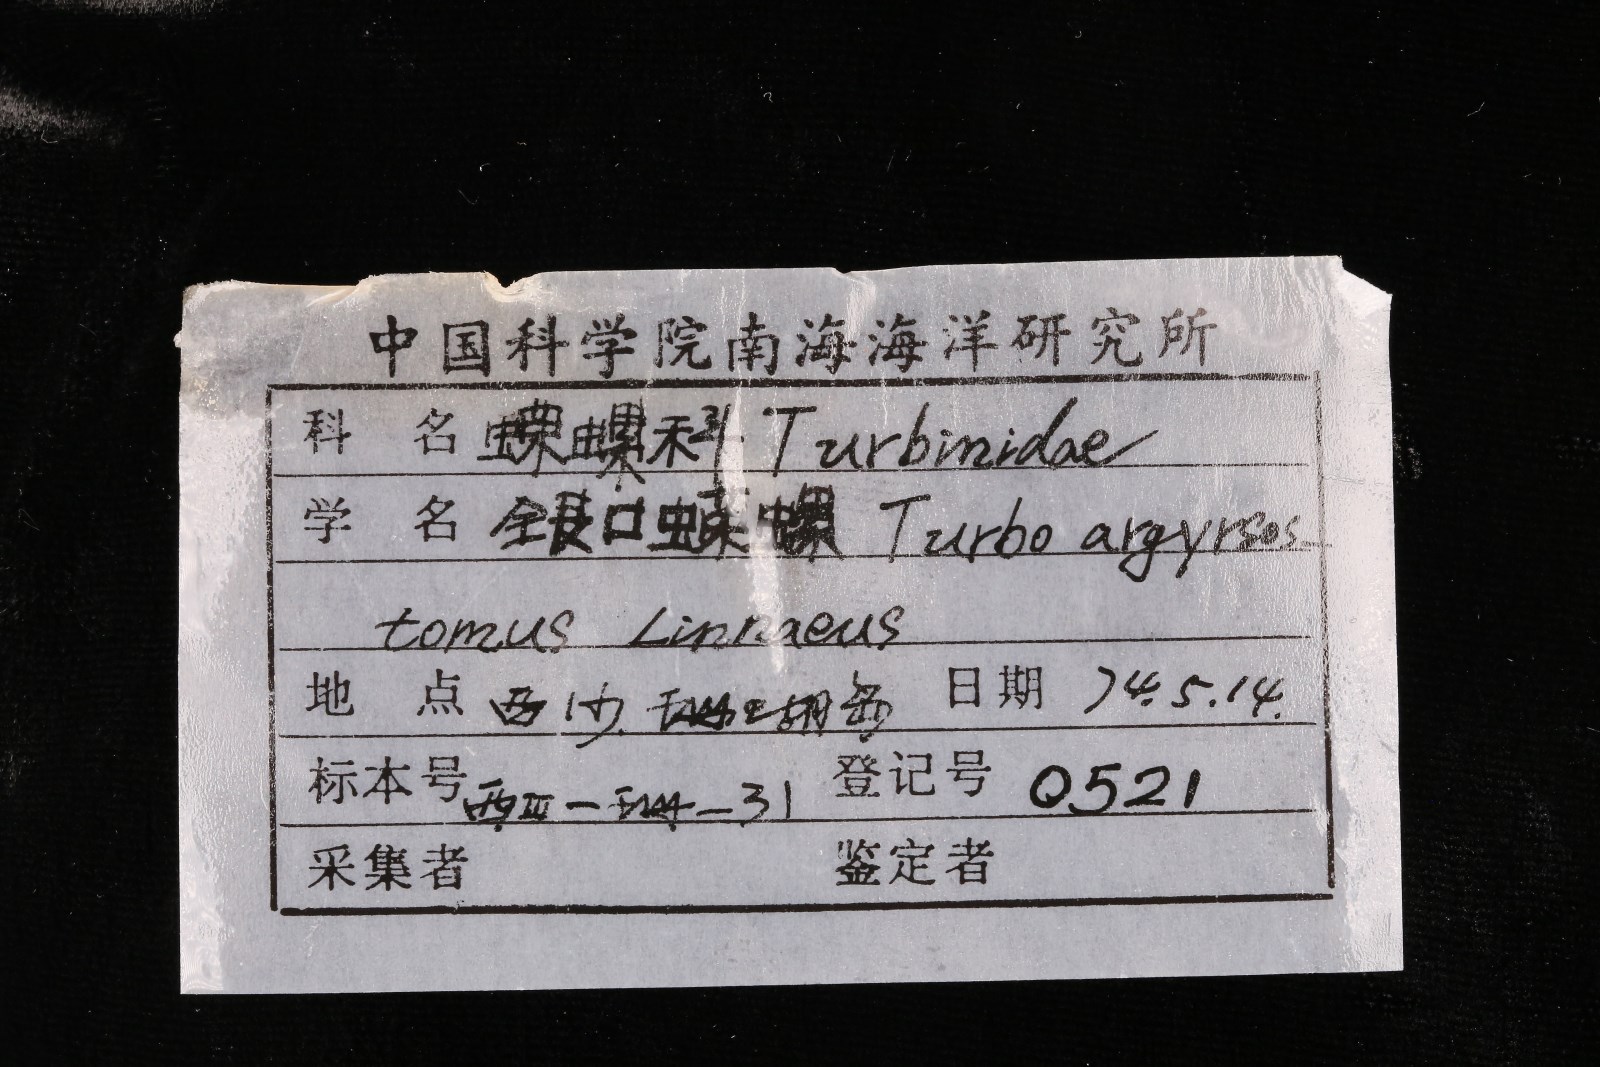 中国科学院南海海洋研究所
科 名 蝾螺科 Turbinidae
学 名 银口蝾螺 Turbo argyrsos
tomus Linnaeus
地 点 西沙 珊瑚岛 日期 74.5.14.
标本号 西Ⅲ-珊-31 登记号 0521
采集者 鉴定者